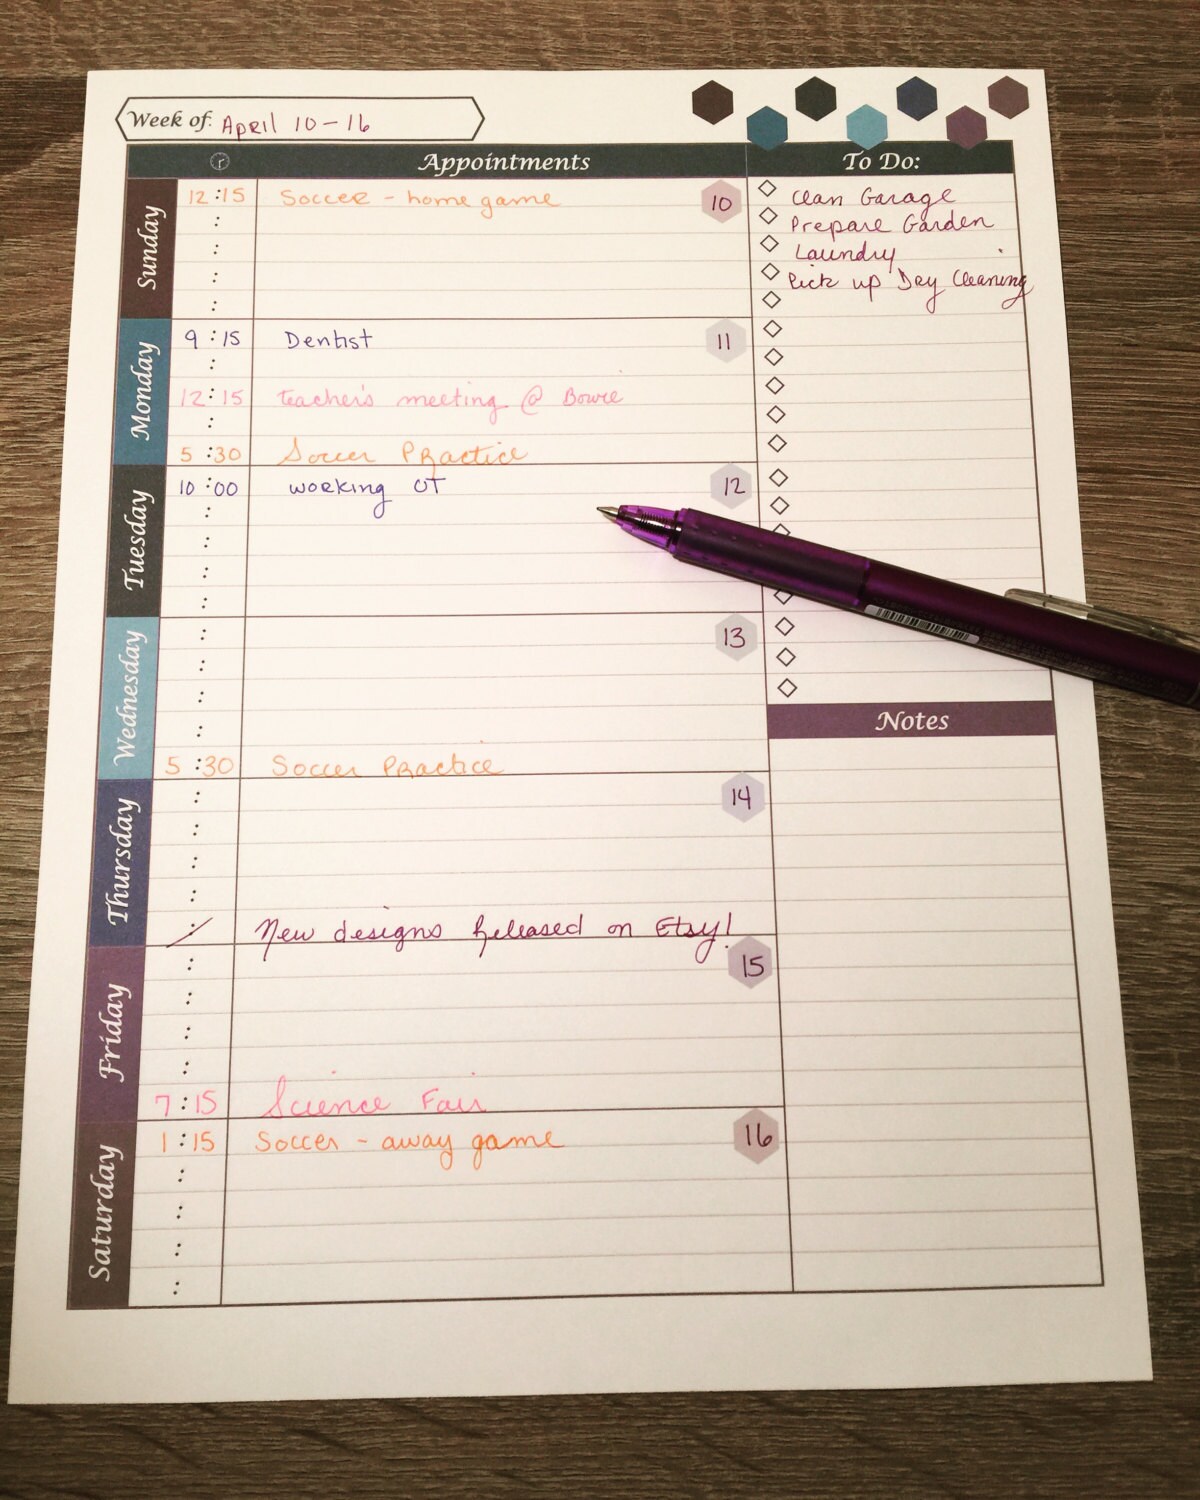 Week of: April 10-16
Appointments
To Do:
Sunday
12:15 Soccer - home game 10
Clean Garage
Prepare Garden
Laundry
Pick up Dry Cleaning
Monday
9:15 Dentist 11
12:15 teacher's meeting @ Bowie
5:30 Soccer Practice
Tuesday
10:00 working OT 12
Wednesday
13
5:30 Soccer Practice
Notes
Thursday
14
New designs Released on Etsy!
Friday
15
7:15 Science Fair
Saturday
1:15 Soccer - away game 16